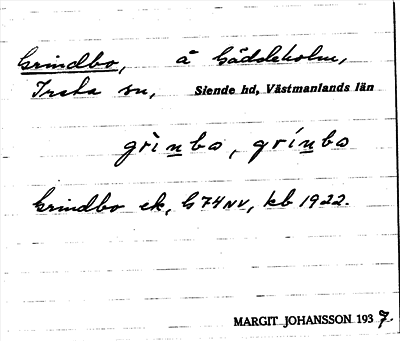 Grindbo, å Gäddeholm,
Irsta sn, Siende hd, Västmanlands län
grìnbo, grínbo
Grindbo ek, G 74 NV, kb 1922.
MARGIT JOHANSSON 1937